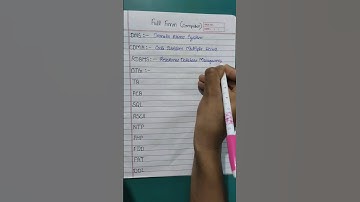 Full Form (Computer)
DBS :- Domain Based System
CDMA :- Code Division Multiple Access
RDBMS :- Relational Database Management
OTP :-
TB
PCB
SQL
ASCII
NTP
PHP
FDD
FAT
DDL